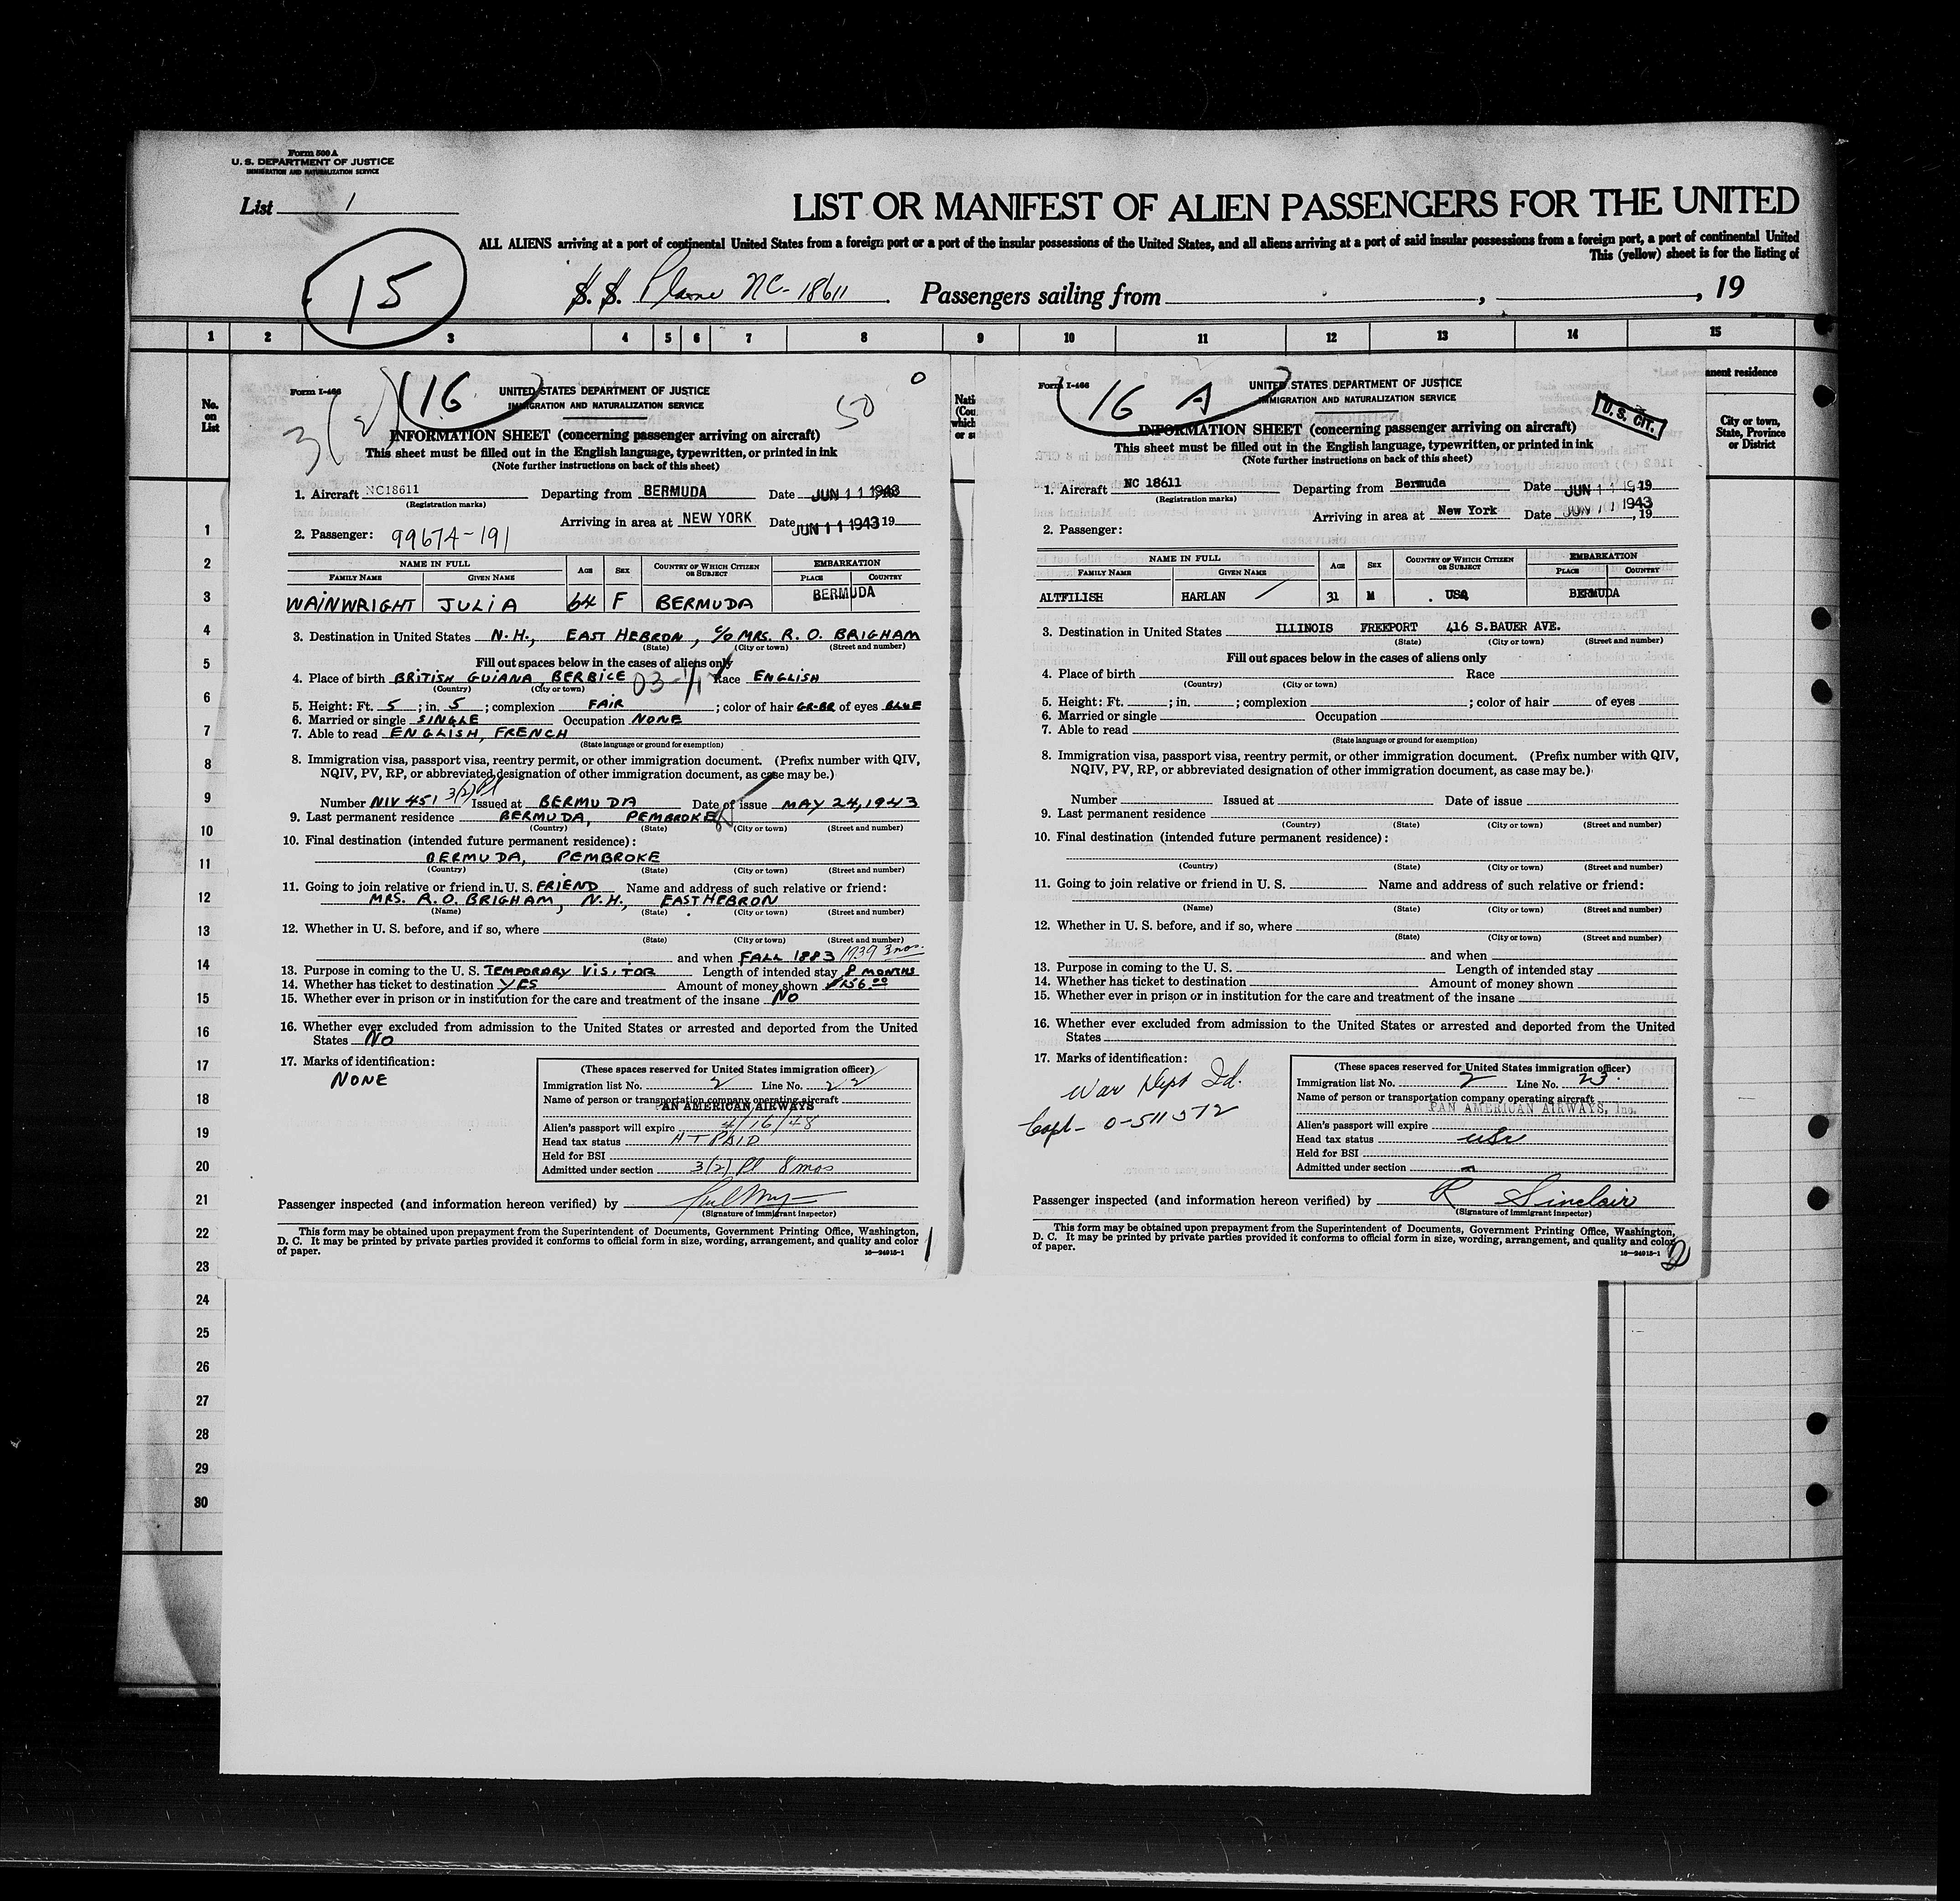 Form 500 A
U. S. DEPARTMENT OF JUSTICE
IMMIGRATION AND NATURALIZATION SERVICE
List 1
LIST OR MANIFEST OF ALIEN PASSENGERS FOR THE UNITED
ALL ALIENS arriving at a port of continental United States from a foreign port or a port of the insular possessions of the United States, and all aliens arriving at a port of said insular possessions from a foreign port, a port of continental United
This (yellow) sheet is for the listing of
15
S. S. Plane NC-18611 Passengers sailing from , , 19
1 2 3 4 5 6 7 8 9 10 11 12 13 14 15
No. on List
anent residence
City or town, State, Province or District
Form I-466
16
UNITED STATES DEPARTMENT OF JUSTICE
IMMIGRATION AND NATURALIZATION SERVICE
3(2)
50
0
INFORMATION SHEET (concerning passenger arriving on aircraft)
This sheet must be filled out in the English language, typewritten, or printed in ink
(Note further instructions on back of this sheet)
1. Aircraft NC18611 Departing from BERMUDA Date JUN 11 1943
(Registration marks)
Arriving in area at NEW YORK Date JUN 11 1943 19
2. Passenger: 99674-191
NAME IN FULL AGE SEX COUNTRY OF WHICH CITIZEN OR SUBJECT EMBARKATION
FAMILY NAME GIVEN NAME PLACE COUNTRY
WAINWRIGHT JULIA 64 F BERMUDA BERMUDA
3. Destination in United States N.H., EAST HEBRON, c/o MRS. R. O. BRIGHAM
(State) (City or town) (Street and number)
Fill out spaces below in the cases of aliens only
4. Place of birth BRITISH GUIANA, BERBICE 03-4 Race ENGLISH
(Country) (City or town)
5. Height: Ft. 5 ; in. 5 ; complexion FAIR ; color of hair GR-BR of eyes BLUE
6. Married or single SINGLE Occupation NONE
7. Able to read ENGLISH, FRENCH
(State language or ground for exemption)
8. Immigration visa, passport visa, reentry permit, or other immigration document. (Prefix number with QIV,
NQIV, PV, RP, or abbreviated designation of other immigration document, as case may be.)
Number NIV 451 3(2) Pl Issued at BERMUDA Date of issue MAY 24, 1943
9. Last permanent residence BERMUDA, PEMBROKE
(Country) (State) (City or town) (Street and number)
10. Final destination (intended future permanent residence):
BERMUDA, PEMBROKE
(Country) (State) (City or town) (Street and number)
11. Going to join relative or friend in U. S. FRIEND Name and address of such relative or friend:
MRS. R. O. BRIGHAM, N.H., EAST HEBRON
(Name) (State) (City or town) (Street and number)
12. Whether in U. S. before, and if so, where
(State) (City or town) (Street and number)
and when FALL 1883 1939 3 mos.
13. Purpose in coming to the U. S. TEMPORARY VISITOR Length of intended stay 8 MONTHS
14. Whether has ticket to destination YES Amount of money shown $156.00
15. Whether ever in prison or in institution for the care and treatment of the insane NO
16. Whether ever excluded from admission to the United States or arrested and deported from the United
States NO
17. Marks of identification:
NONE
(These spaces reserved for United States immigration officer)
Immigration list No. 2 Line No. 22
Name of person or transportation company operating aircraft
PAN AMERICAN AIRWAYS
Alien's passport will expire 4/16/48
Head tax status HT PAID
Held for BSI
Admitted under section 3(2) Pl 8 mos
Passenger inspected (and information hereon verified) by
(Signature of immigrant inspector)
This form may be obtained upon prepayment from the Superintendent of Documents, Government Printing Office, Washington,
D. C. It may be printed by private parties provided it conforms to official form in size, wording, arrangement, and quality and color
of paper.
16-24915-1
1
Form I-466
16 A
UNITED STATES DEPARTMENT OF JUSTICE
IMMIGRATION AND NATURALIZATION SERVICE
U. S. CIT.
INFORMATION SHEET (concerning passenger arriving on aircraft)
This sheet must be filled out in the English language, typewritten, or printed in ink
(Note further instructions on back of this sheet)
1. Aircraft NC 18611 Departing from Bermuda Date JUN 11 19 19
(Registration marks)
Arriving in area at New York Date JUN 11 1943, 19
2. Passenger:
NAME IN FULL AGE SEX COUNTRY OF WHICH CITIZEN OR SUBJECT EMBARKATION
FAMILY NAME GIVEN NAME PLACE COUNTRY
ALTFILISH HARLAN 31 M USA BERMUDA
3. Destination in United States ILLINOIS FREEPORT 416 S.BAUER AVE.
(State) (City or town) (Street and number)
Fill out spaces below in the cases of aliens only
4. Place of birth Race
(Country) (City or town)
5. Height: Ft. ; in. ; complexion ; color of hair of eyes
6. Married or single Occupation
7. Able to read
(State language or ground for exemption)
8. Immigration visa, passport visa, reentry permit, or other immigration document. (Prefix number with QIV,
NQIV, PV, RP, or abbreviated designation of other immigration document, as case may be.)
Number Issued at Date of issue
9. Last permanent residence
(Country) (State) (City or town) (Street and number)
10. Final destination (intended future permanent residence):
(Country) (State) (City or town) (Street and number)
11. Going to join relative or friend in U. S. Name and address of such relative or friend:
(Name) (State) (City or town) (Street and number)
12. Whether in U. S. before, and if so, where
(State) (City or town) (Street and number)
and when
13. Purpose in coming to the U. S. Length of intended stay
14. Whether has ticket to destination Amount of money shown
15. Whether ever in prison or in institution for the care and treatment of the insane
16. Whether ever excluded from admission to the United States or arrested and deported from the United
States
17. Marks of identification:
War Dept Id.
Capt - 0-511572
(These spaces reserved for United States immigration officer)
Immigration list No. 2 Line No. 23.
Name of person or transportation company operating aircraft
PAN AMERICAN AIRWAYS, Inc.
Alien's passport will expire
Head tax status usc
Held for BSI
Admitted under section
Passenger inspected (and information hereon verified) by R Sinclair
(Signature of immigrant inspector)
This form may be obtained upon prepayment from the Superintendent of Documents, Government Printing Office, Washington,
D. C. It may be printed by private parties provided it conforms to official form in size, wording, arrangement, and quality and color
of paper.
16-24915-1
2
1
2
3
4
5
6
7
8
9
10
11
12
13
14
15
16
17
18
19
20
21
22
23
24
25
26
27
28
29
30